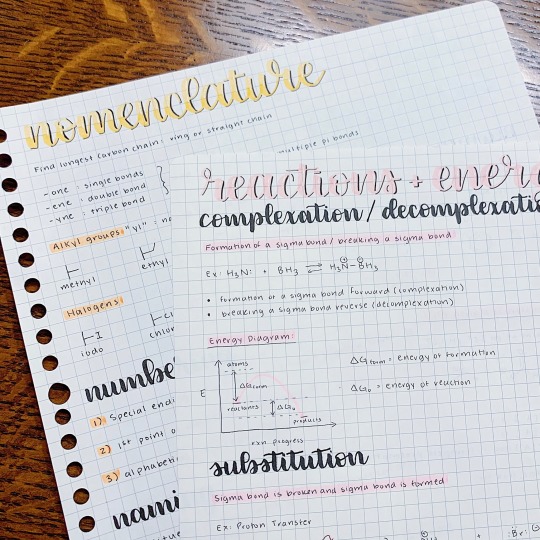 nomenclature
Find longest carbon chain: ring or straight chain
multiple pi bonds
-one : single bonds
-ene : double bond
-yne : triple bond
Alkyl groups: "yl"
methyl
ethyl
Halogens:
I
Cl
iodo
1) special
2) 1st point
3)
reactions +
complexation /
Formation of a sigma bond / breaking a sigma bond
Ex: H₃N: + BH₃ ⇌ H₃N⊕–⊖BH₃
• formation of a sigma bond forward (complexation)
• breaking a sigma bond reverse (decomplexation)
Energy Diagram:
atoms
ΔG form
E
reactants
ΔG₀
products
rxn progress
ΔG form = energy of formation
ΔG₀ = energy of reaction
substitution
Sigma bond is broken and sigma bond is formed
Ex: Proton Transfer
:Br: